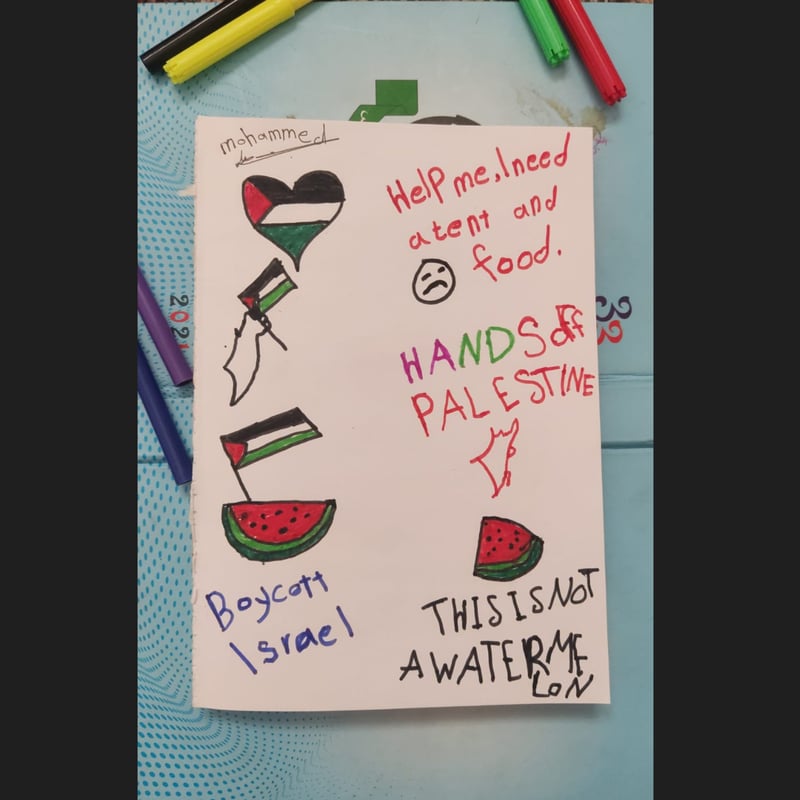 mohammed
HelP me, I need
a tent and
food.
HANDS off
PALESTINE
Boycott
Israel
THIS IS NOT
A WATERME
LON
2021
33